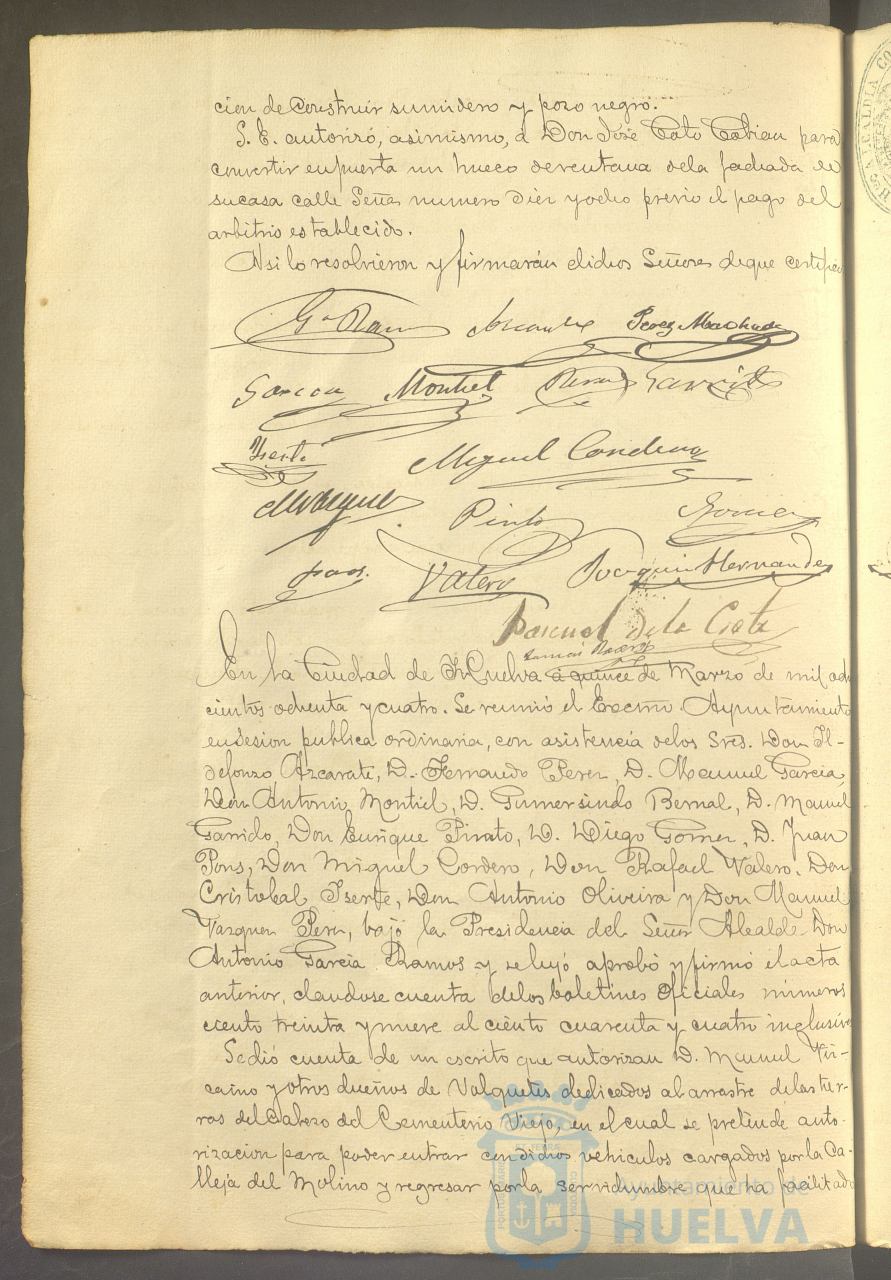 cion de Construir sumidero y pozo negro.
S. E. autorizó, asimismo, á Don José Coto Cobian para
convertir en puerta un hueco de ventana dela fachada de
su casa calle Señas numero Diez y ocho previo el pago del
arbitrio establecido.
Asi lo resolvieron y firmarán dichos Señores de que certifico
Ga Ramos Azcarate Perez Machado
Garcia Montiel Bernal Garrido
Yserte Miguel Cordero
MVazquez Pinto Gomez
Pons. Valero Joaquin Hernandez
Pascual de la Corte
En la Ciudad de Huelva á quince de Marzo de mil ocho
cientos ochenta y cuatro. Se reunió el Excmo. Ayuntamiento
en sesion publica ordinaria, con asistencia de los Sres. Don Il-
defonzo Azcarate, D. Fernando Perez, D. Manuel Garcia,
Don Antonio Montiel, D. Gumersindo Bernal, D. Manuel
Garrido, Don Enrique Pinto, D. Diego Gomez, D. Juan
Pons, Don Miguel Cordero, Don Rafael Valero. Don
Cristobal Yserte, Don Antonio Oliveira y Don Manuel
Vazquez Perez, bajo la Presidencia del Señor Alcalde Don
Antonio Garcia Ramos y se leyó aprobó y firmó el acta
anterior, dandose cuenta delos boletines Oficiales números
ciento treinta y nueve al ciento cuarenta y cuatro inclusive
Se dió cuenta de un escrito que autorizan D. Manuel Viz-
caino y otros dueños de Volquetes dedicados al arrastre de las tier-
ras del Cabezo del Cementerio Viejo, en el cual se pretende auto-
rizacion para poder entrar con dichos vehiculos cargados por la Ca-
lleja del Molino y regresar por la servidumbre que ha facilitado
Ayuntamiento de
HUELVA